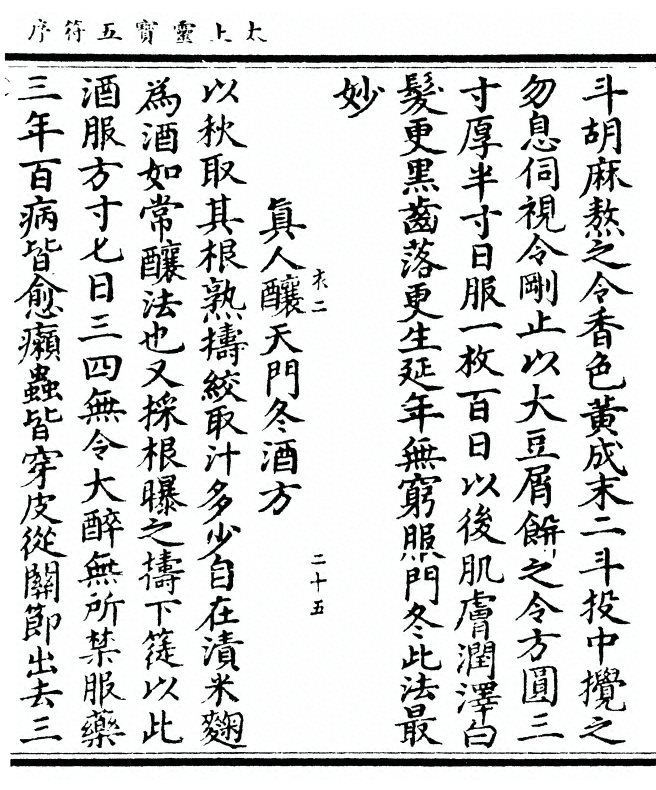 太上靈寶五符序
斗胡麻熬之令香色黃成末二斗投中攪之
勿息伺視令剛止以大豆屑餅之令方圓三
寸厚半寸日服一枚百日以後肌膚潤澤白
髮更黑齒落更生延年無窮服門冬此法最
妙
衣二
二十五
眞人釀天門冬酒方
以秋取其根熟擣絞取汁多少自在漬米麴
為酒如常釀法也又採根曝之擣下簁以此
酒服方寸匕日三四無令大醉無所禁服藥
三年百病皆愈癩蟲皆穿皮從關節出去三